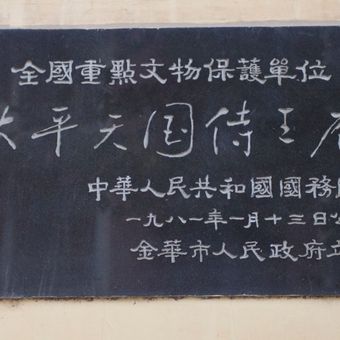 全國重點文物保護單位
太平天国侍王府
中華人民共和國國務院
一九八一年一月十三日公
金華市人民政府立